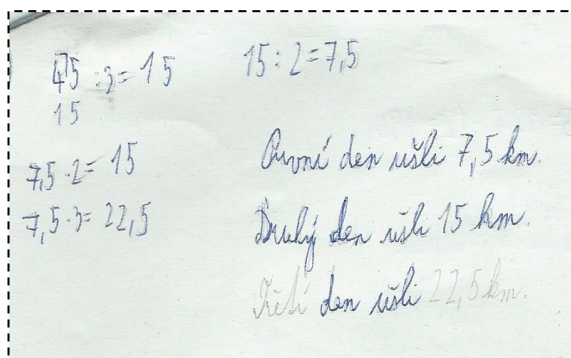 45 : 3 = 15
15
15 : 2 = 7,5
7,5 · 2 = 15
7,5 · 3 = 22,5
První den ušli 7,5 km.
Druhý den ušli 15 km.
Třetí den ušli 22,5 km.